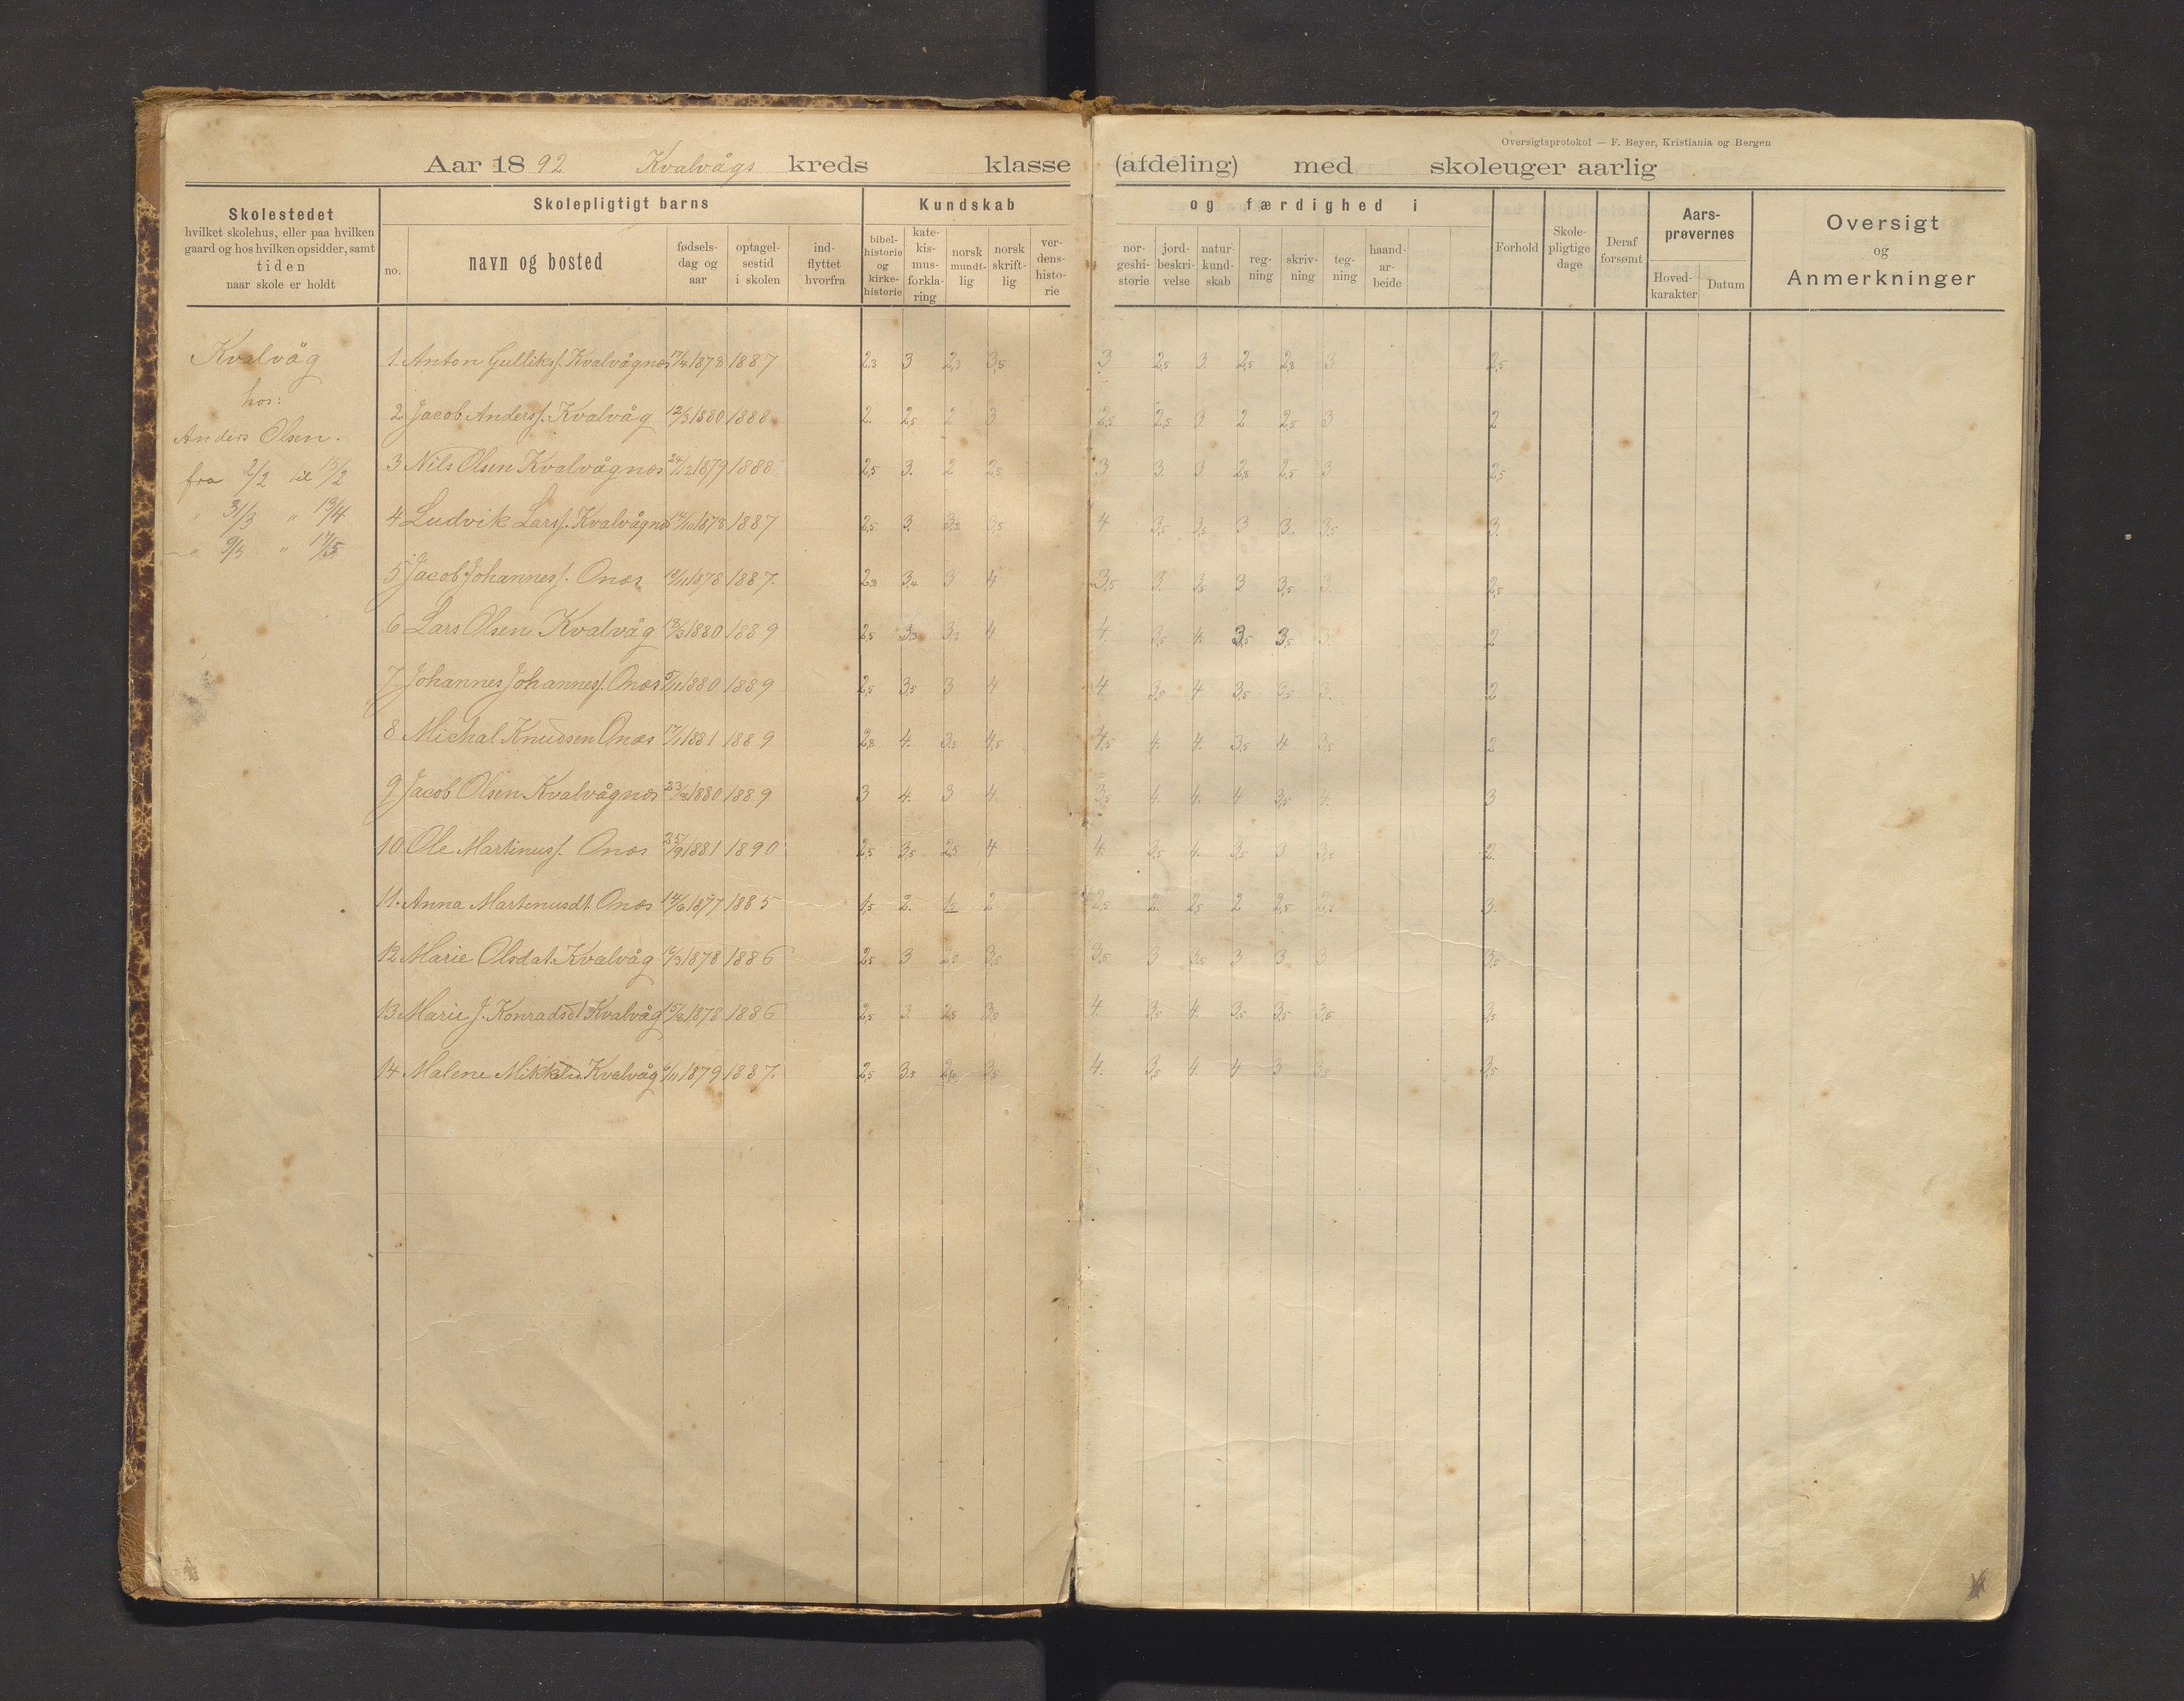 Oversigtsprotokol — F. Beyer, Kristiania og Bergen
Aar 1892 Kvalvågs kreds klasse (afdeling) med skoleuger aarlig
Skolestedet
hvilket skolehus, eller paa hvilken
gaard og hos hvilken opsidder, samt
tiden
naar skole er holdt
Skolepligtigt barns
no.
navn og bosted
fødsels-
dag og
aar
optagel-
sestid
i skolen
ind-
flyttet
hvorfra
Kundskab
bibel-
historie
og
kirke-
historie
kate-
kis-
mus-
forkla-
ring
norsk
mundt-
lig
norsk
skrift-
lig
ver-
dens-
histo-
rie
og færdighed i
nor-
geshi-
storie
jord-
beskri-
velse
natur-
kund-
skab
reg-
ning
skriv-
ning
teg-
ning
haand-
ar-
beide
Forhold
Skole-
pligtige
dage
Deraf
forsømt
Aars-
prøvernes
Hoved-
karakter
Datum
Oversigt
og
Anmerkninger
Kvalvåg
hos:
Anders Olsen.
fra 2/2 til 15/2
" 31/3 " 13/4
" 9/5 " 17/5
1. Anton Gulliks. Kvalvågnæs 17/4 1878 1887 2.3 3 2,3 3,5 3 2,5 3. 2,5 2,8 3 2,5
2 Jacob Anders. Kvalvåg 12/3 1880 1888 2. 2,5 2 3 2,5 2,5 3. 2 2,5 3 2
3 Nils Olsen Kvalvågnæs 24/12 1879 1888 2,5 3. 2 2,5 3 3. 3. 2,8 2,5 3 2,5
4 Ludvik Lars. Kvalvågnæs 14/10 1878 1887 2,5 3. 3,2 3,5 4 3,5 3,5 3 3. 3,5 3.
5 Jacob Johannes. Onæs 18/11 1878 1887. 2,8 3,4 3 4 3,5 3. 3,5 3 3,5 3. 2,5
6 Lars Olsen Kvalvåg 18/3 1880 1889 2,5 3,3 3,2 4 4 3,5 4. 3,5 3,5 3. 2
7 Johannes Johannes. Onæs 5/11 1880 1889 2,5 3,5 3 4 4. 3,5 4 3,5 3,5 3. 2
8 Michal Knudsen Onæs 17/1 1881 1889 2,8 4. 3,5 4,5 4,5 4. 4. 3,5 4 3,5 2
9 Jacob Olsen Kvalvågnæs 23/8 1880 1889 3 4. 3 4. 3,5 4. 4. 4 3,5 4. 3
10 Ole Martinus. Onæs 25/9 1881 1890 2,5 3,5 2,5 4 4. 3,5 4. 3,5 3 3,5 2.
11. Anna Martinusdt. Onæs 14/6 1877 1885 1,5 2. 1,5 2 2,5 2. 2,5 2 2,5 3.
12 Marie Olsdat. Kvalvåg 16/3 1878 1886 2,5 3 2,5 3,5 3,5 3 3,5 3 3 3 3,5
13 Marie J. Konradsdt Kvalvåg 15/8 1878 1886 2,5 3. 2,5 3,5 4. 3,5 4. 3,5 3,5 3,5 3,5
14 Malene Mikkelsd. Kvalvåg 6/11 1879 1887. 2,5 3,5 2,6 3,5 4. 3,5 4. 4 3 3,5 3,5